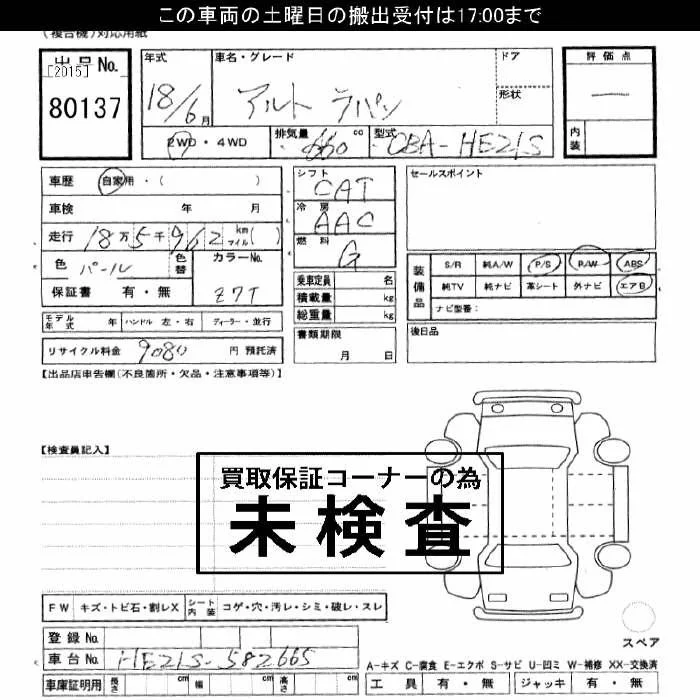 この車両の土曜日の搬出受付は17:00まで
(複合機)対応用紙
出品No. [2015] 80137
年式 18/6月
車名・グレード アルト ラパン
ドア
形状
評価点 一
内装
2WD・4WD
排気量 660 cc
型式 CBA-HE21S
車歴 自家用・( )
車検 年 月
走行 18万5千962 km マイル( )
色 パール 色替
カラーNo. Z7T
保証書 有・無
モデル年式 年 ハンドル 左・右 ディーラー・並行
リサイクル料金 9080 円 預託済
シフト CAT
冷房 AAC
燃料 G
乗車定員 名
積載量 kg
総重量 kg
書類期限
月 日
セールスポイント
装備品
S/R 純A/W P/S P/W ABS
純TV 純ナビ 革シート 外ナビ エアB
ナビ型番:
後日品
【出品店申告欄(不良箇所・欠品・注意事項等)】
【検査員記入】
買取保証コーナーの為
未検査
FW キズ・トビ石・割レX シート内装 コゲ・穴・汚レ・シミ・破レ・スレ
スペア
登録No.
車台No. HE21S-582665
車庫証明用 長さ cm 幅 cm 高さ cm
A-キズ C-腐食 E-エクボ S-サビ U-凹ミ W-補修 XX-交換済
工具 有・無 ジャッキ 有・無